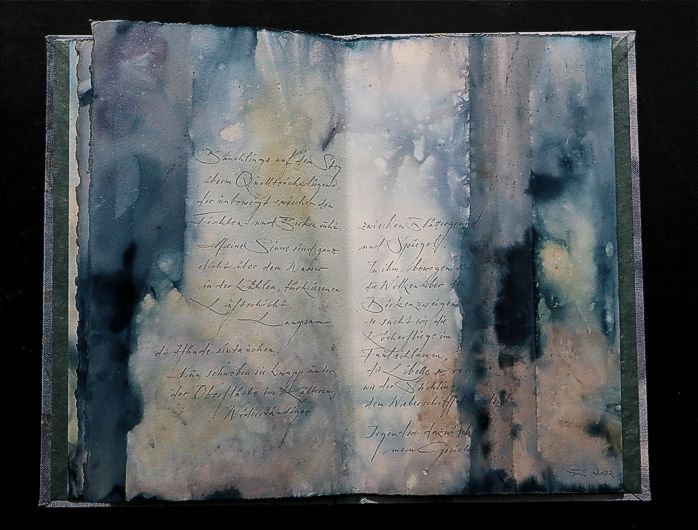 Bäuchlings auf dem Steg
überm Quellteich liegend,
der unbewegt zwischen den
Fichten- und Birken ruht.
Meine Sinne sind ganz
dicht über dem Wasser
in der kühlen,
Luftschicht.
Langsam
die Hände eintauchen.
Nun schweben sie knapp unter
der Oberfläche im Kälteren,
Widerständigen
zwischen Blättergrund
und Spiegel.
In ihm bewegen
die Wolken über die
Birkenzweige
so sacht wie die
Köcherfliege im
die Libelle
wie der Stichling
dem Weberschiff
Irgendwo dazwischen
mein Gesicht
2022